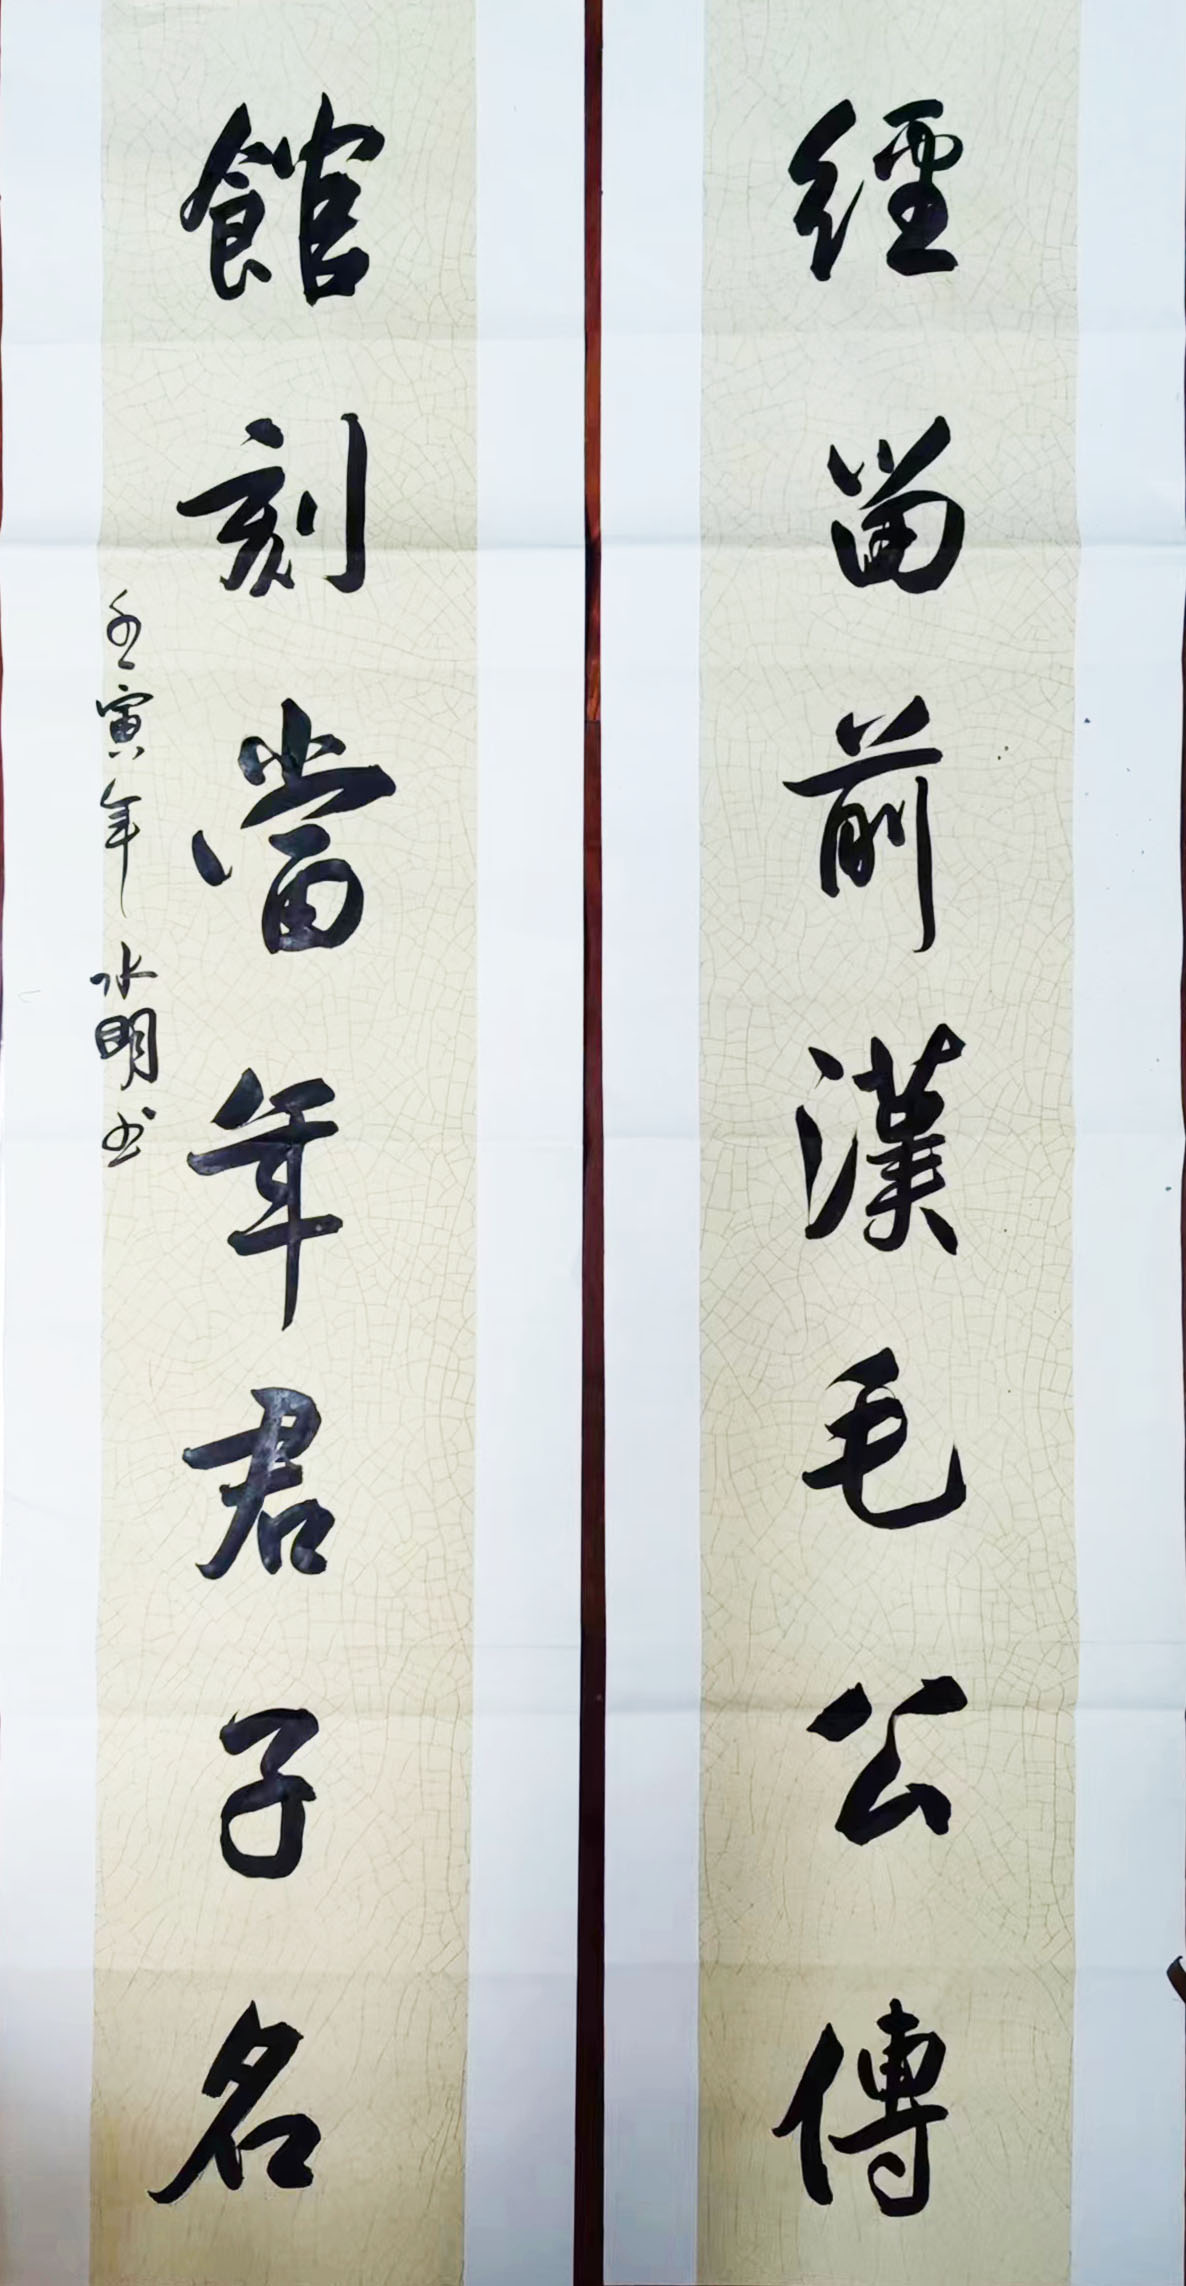 經畱前漢毛公傳
館刻當年君子名
壬寅年水明书